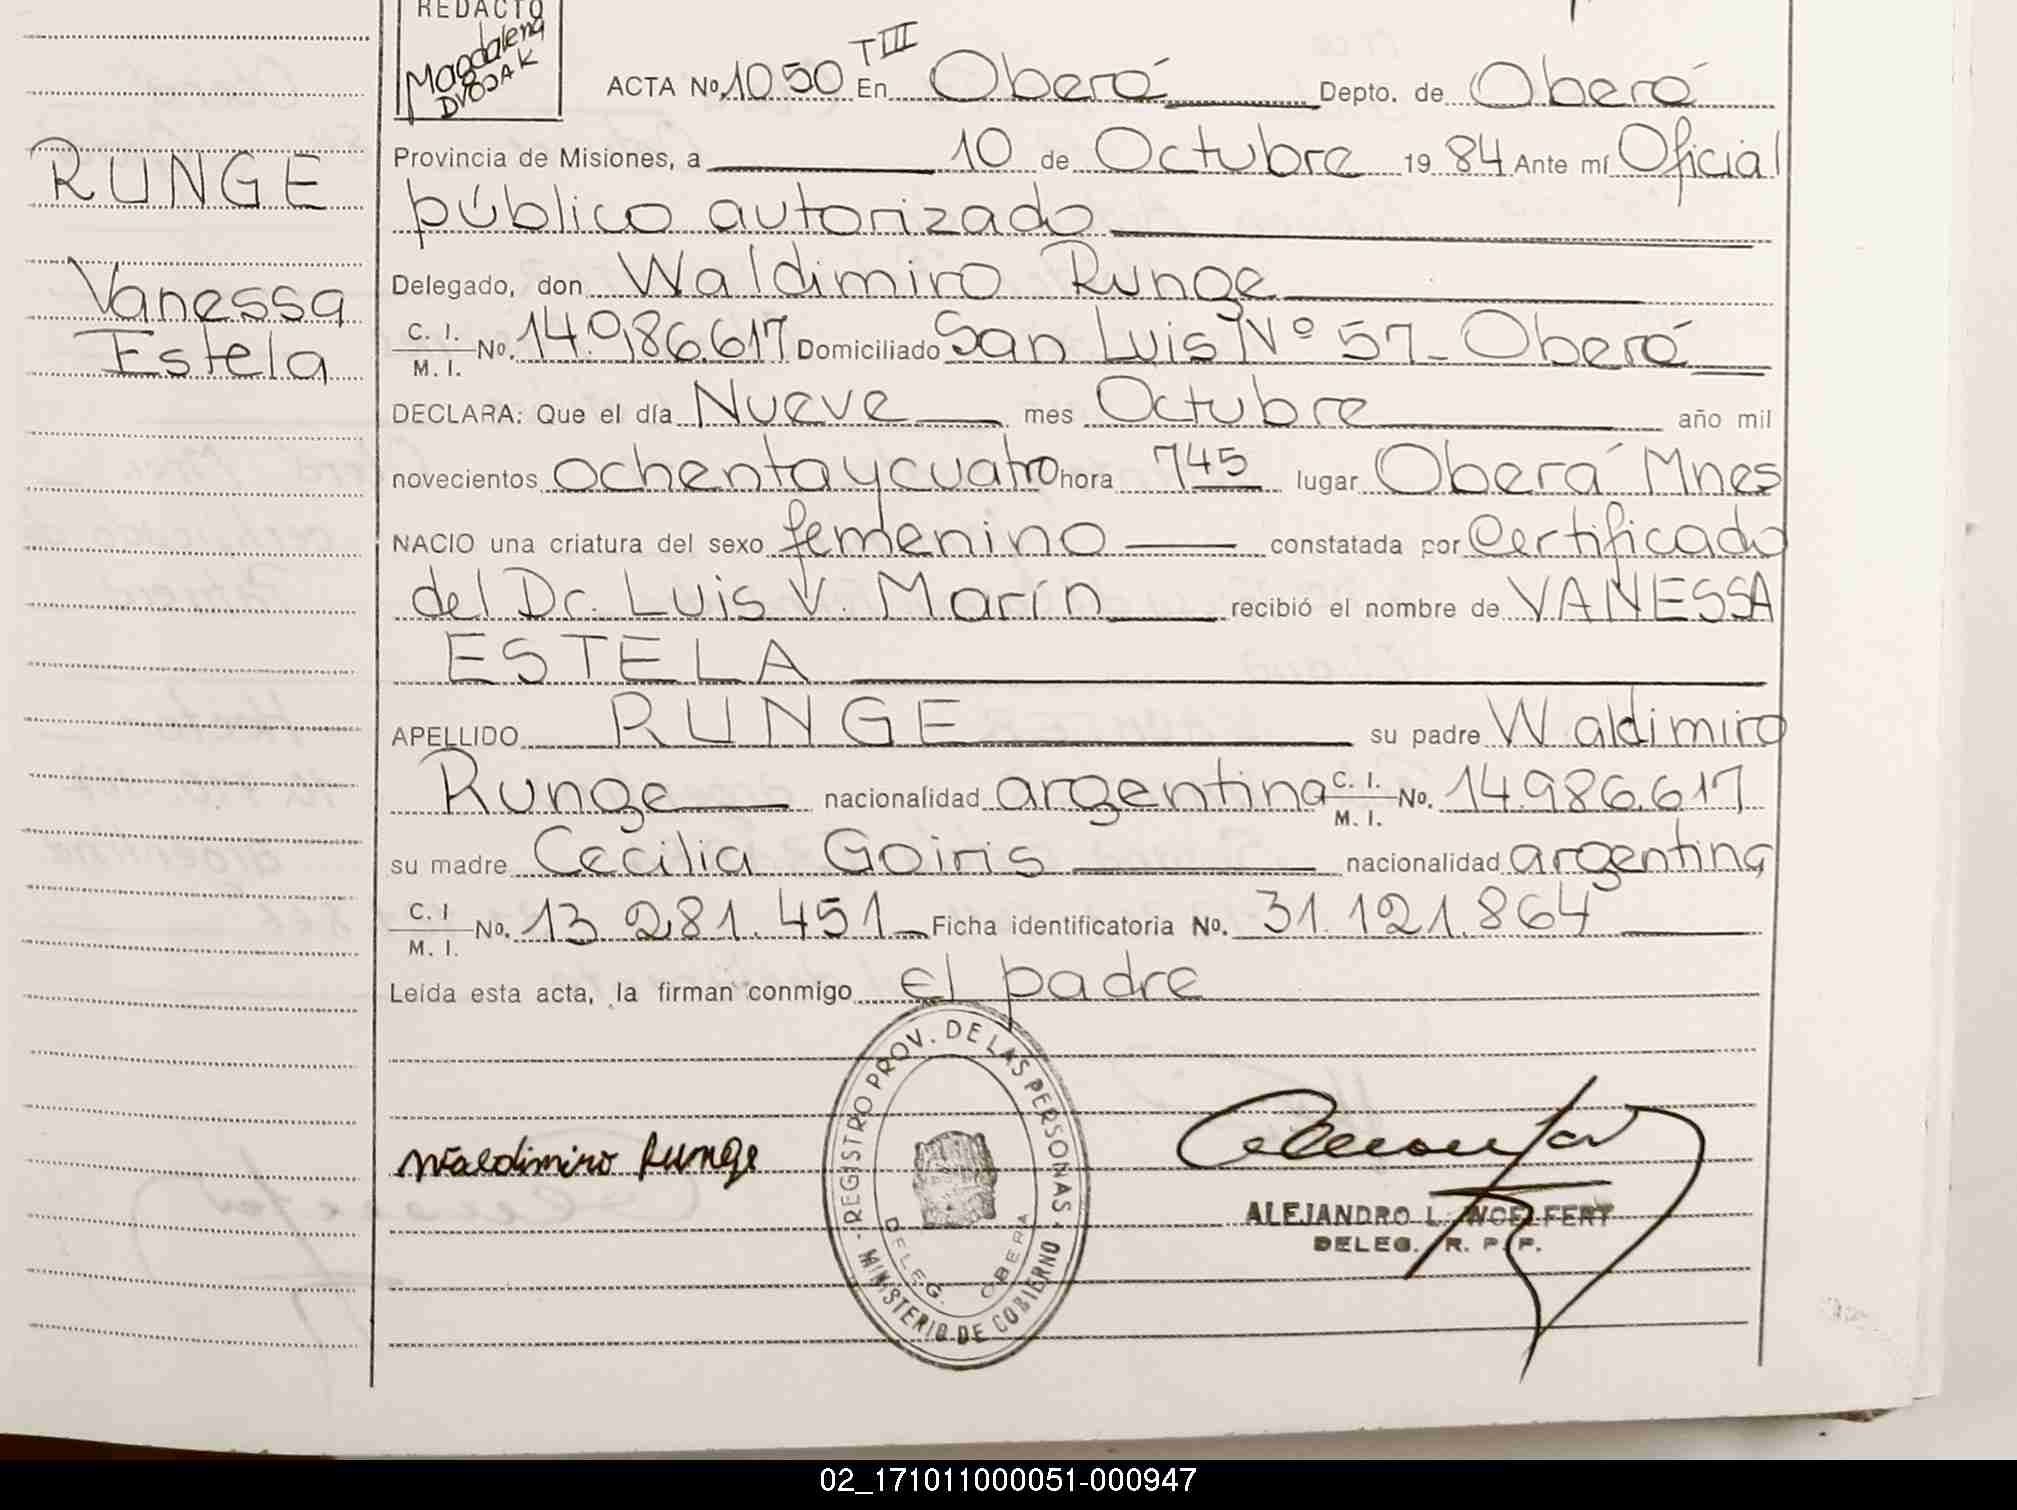 REDACTO
Magdalena
DVOJAK
T III
ACTA No. 1050 En Oberá Depto. de Oberá
Provincia de Misiones, a 10 de Octubre 19 84 Ante mí Oficial
público autorizado
RUNGE
Vanessa
Estela
Delegado, don Waldimiro Runge
C. I. / M. I. No. 14.986.617 Domiciliado San Luis Nº 57 - Oberá
DECLARA: Que el día Nueve mes Octubre año mil
novecientos ochentaycuatro hora 745 lugar Oberá Mnes
NACIO una criatura del sexo femenino constatada por Certificado
del Dr. Luis V. Marín recibió el nombre de VANESSA
ESTELA
APELLIDO RUNGE su padre Waldimiro
Runge nacionalidad argentina C. I. / M. I. No. 14.986.617
su madre Cecilia Goiris nacionalidad argentina
C. I / M. I. No. 13.281.451 Ficha identificatoria No. 31.121.864
Leída esta acta, la firman conmigo el padre
REGISTRO PROV. DE LAS PERSONAS
MINISTERIO DE GOBIERNO
DELEG. OBERA
Waldimiro Runge
ALEJANDRO L.
DELEG. R. P. P.
02_171011000051-000947